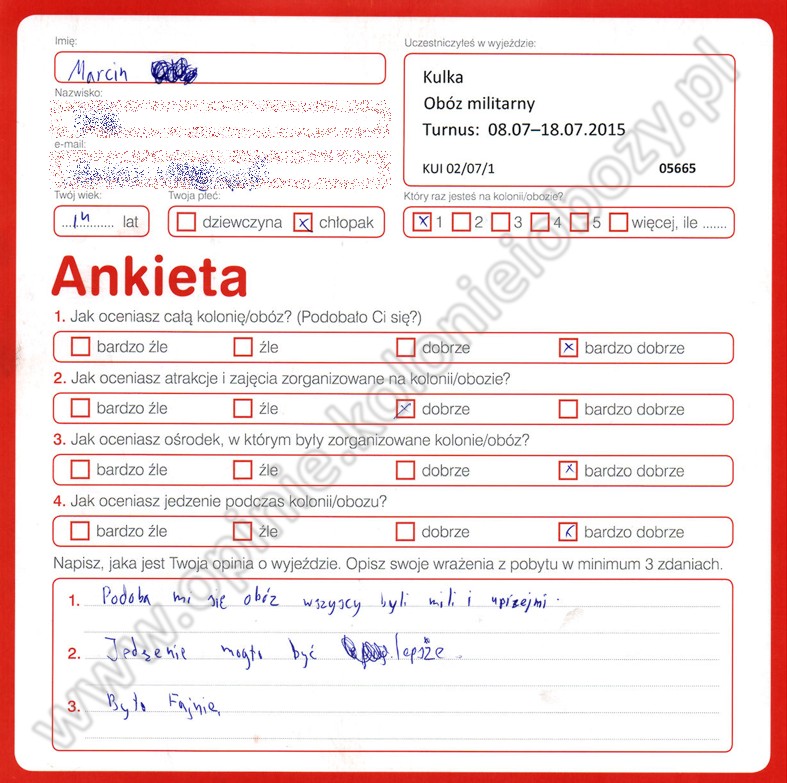 Imię:
Marcin
Uczestniczyłeś w wyjeździe:
Kulka
Obóz militarny
Turnus: 08.07–18.07.2015
KUI 02/07/1 05665
Nazwisko:
e-mail:
Twój wiek:
14 lat
Twoja płeć:
dziewczyna x chłopak
Który raz jesteś na kolonii/obozie?
x 1 2 3 4 5 więcej, ile .......
Ankieta
1. Jak oceniasz całą kolonię/obóz? (Podobało Ci się?)
bardzo źle źle dobrze x bardzo dobrze
2. Jak oceniasz atrakcje i zajęcia zorganizowane na kolonii/obozie?
bardzo źle źle x dobrze bardzo dobrze
3. Jak oceniasz ośrodek, w którym były zorganizowane kolonie/obóz?
bardzo źle źle dobrze x bardzo dobrze
4. Jak oceniasz jedzenie podczas kolonii/obozu?
bardzo źle źle dobrze x bardzo dobrze
Napisz, jaka jest Twoja opinia o wyjeździe. Opisz swoje wrażenia z pobytu w minimum 3 zdaniach.
1. Podoba mi się obóz wszyscy byli mili i uprzejmi.
2. Jedzenie mogło być lepsze.
3. Było Fajnie.
www.opinie.kolonieiobozy.pl